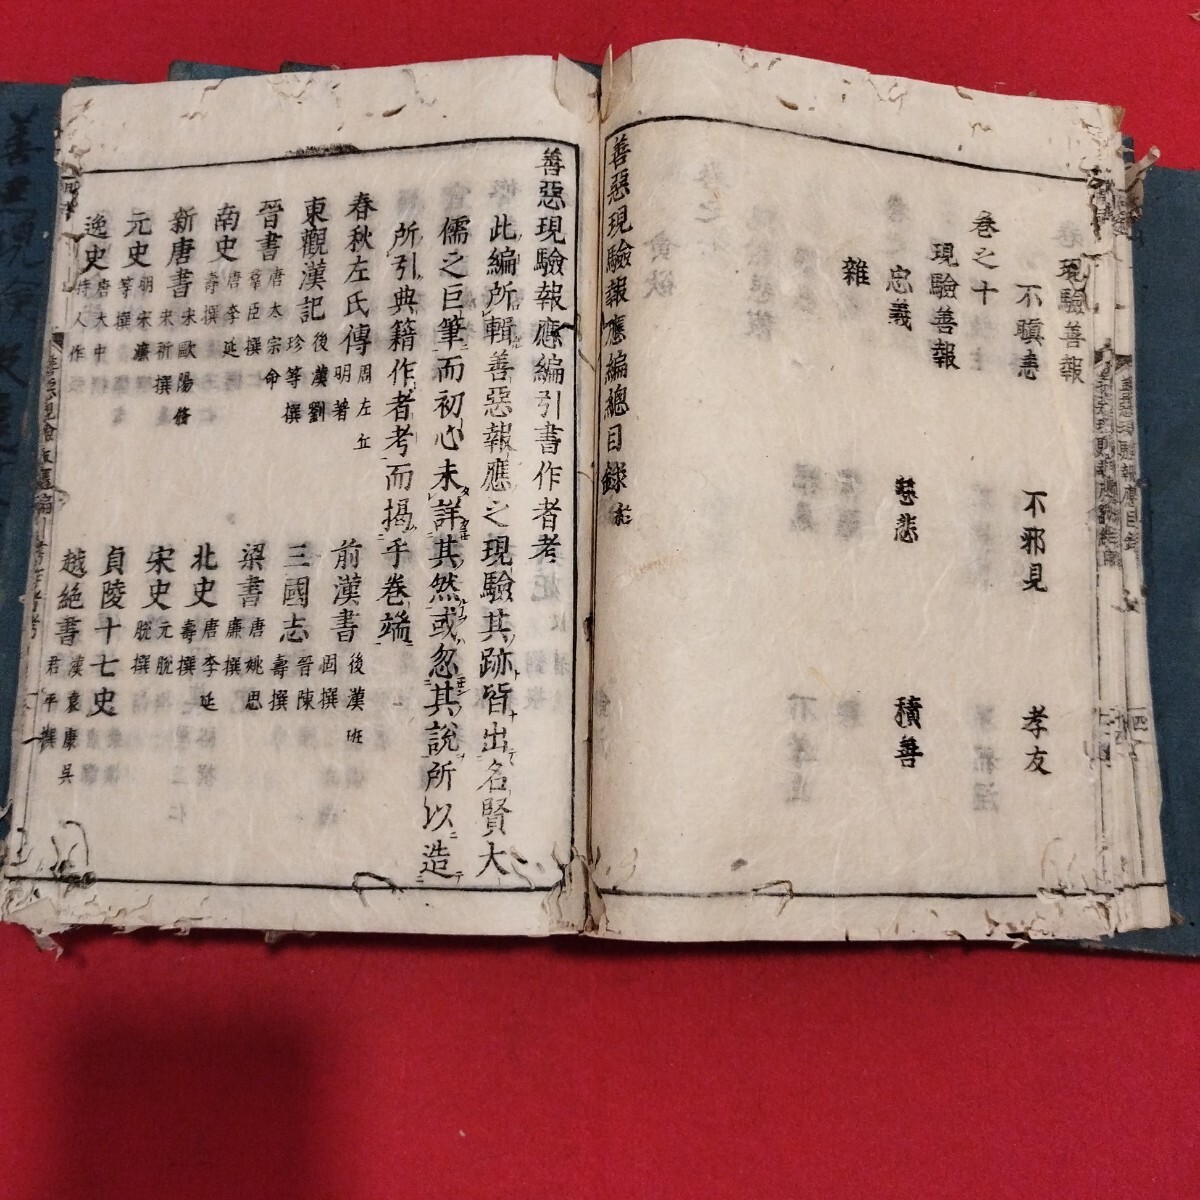 現驗善報
不瞋恚　不邪見　孝友
卷之十
現驗善報
忠義　慈悲　積善
雜
善惡現驗報應編總目錄終
善惡現驗報應編引書作者考
此編所輯善惡報應之現驗其跡皆出名賢大
儒之巨筆而初心未詳其然或忽其說所以造
所引典籍作者考而揭乎卷端
春秋左氏傳 周左丘明著　前漢書 後漢班固撰
東觀漢記 後漢劉珍等撰　三國志 晉陳壽撰
晉書 唐太宗命羣臣撰　梁書 唐姚思廉撰
南史 唐李延壽撰　北史 唐李延壽撰
新唐書 宋歐陽脩宋祈撰　宋史 元脫脫撰
元史 明宋濂等撰　貞陵十七史
逸史 唐大中時人作　越絶書 漢袁康吳君平撰